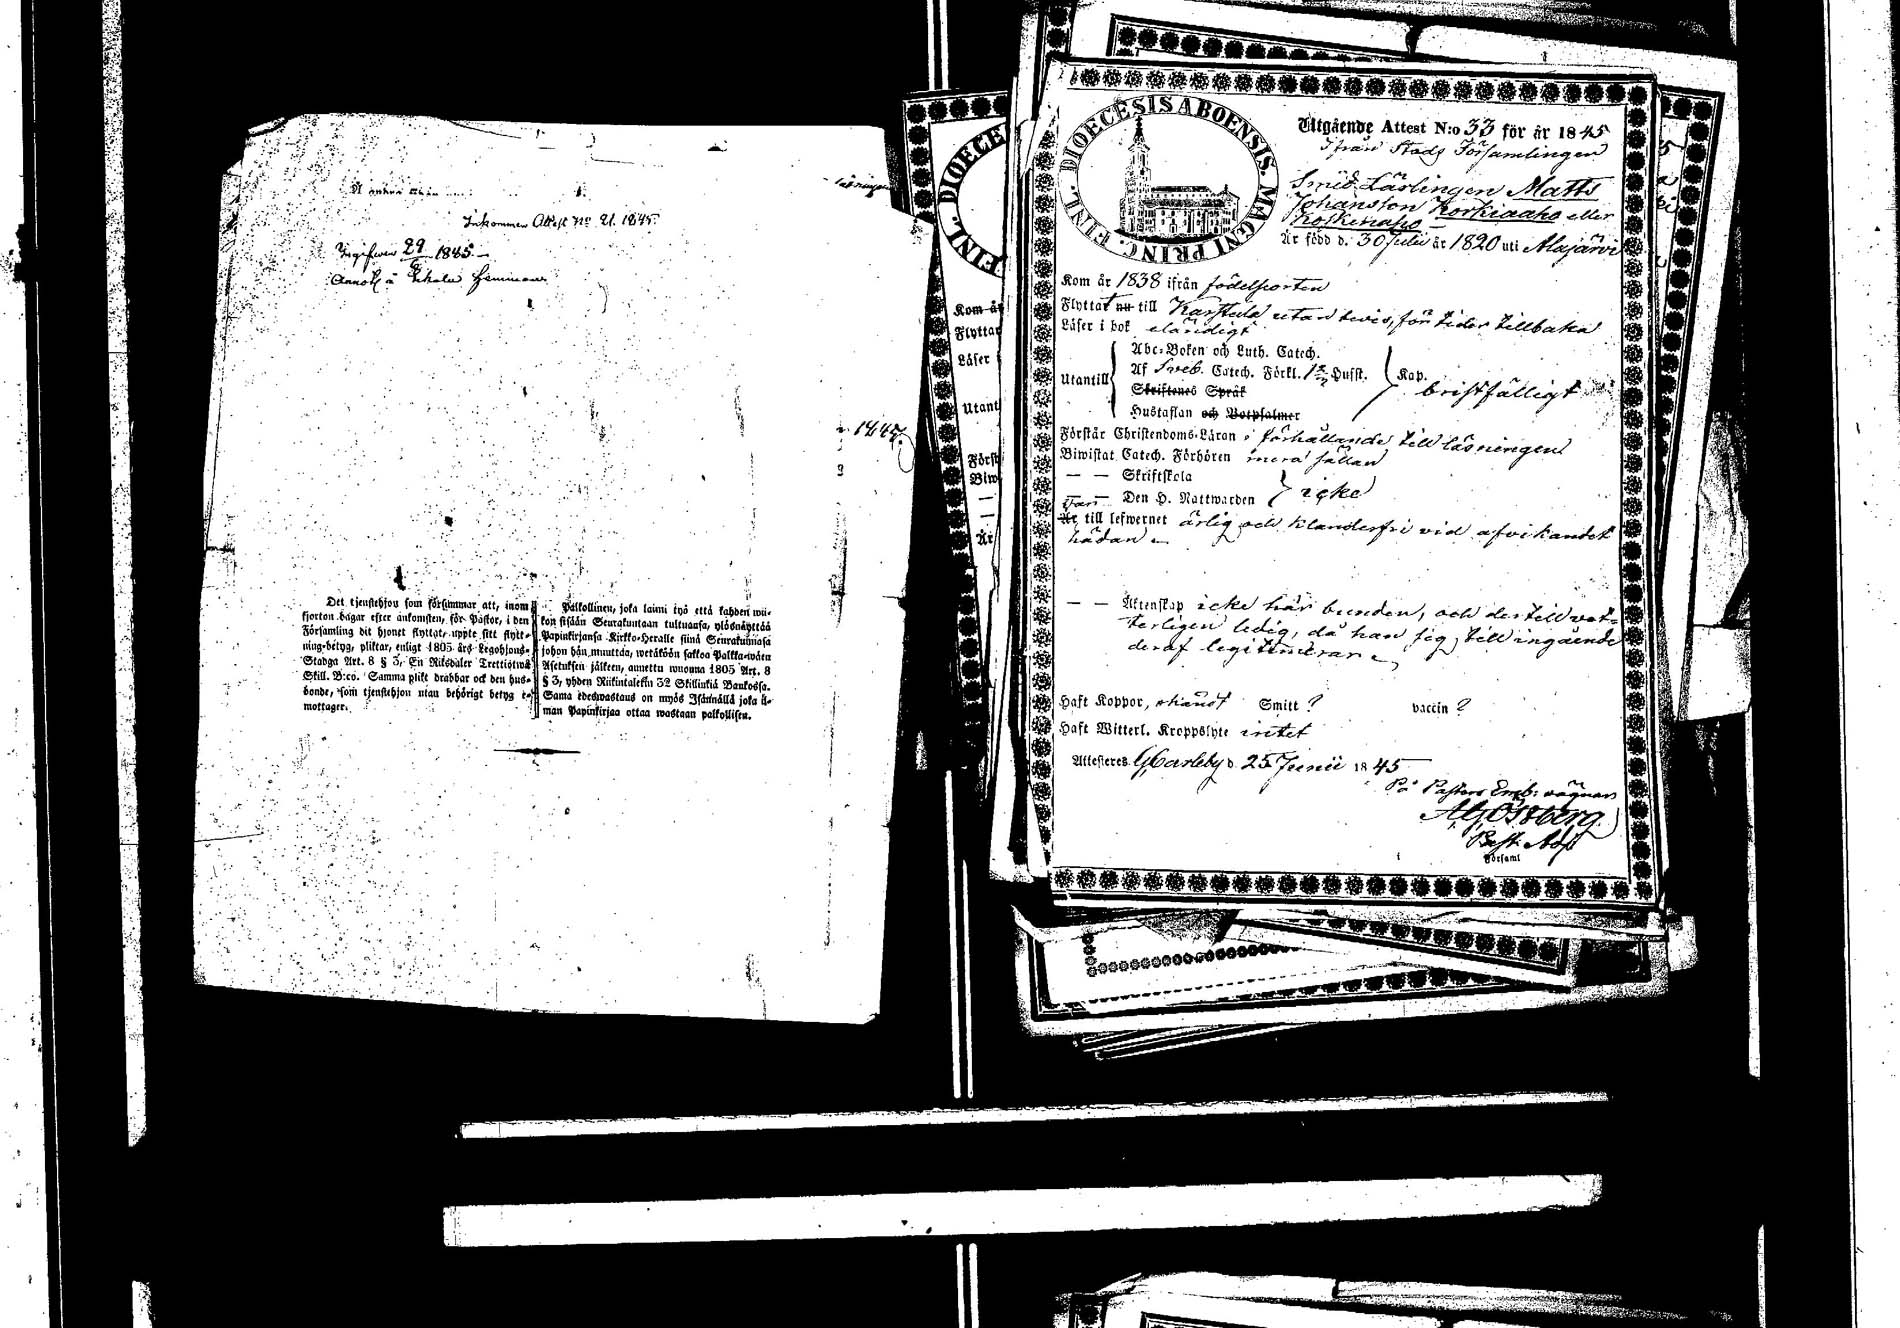 Inkommen Attest No 21. 1845.
Ingifwen 29 1845.
Det tjenstehjon som försummar att, inom
fjorton dagar efter ankomsten, för Pastor, i den
Församling dit hjonet flyttat, uppte sitt flytt-
ning-betyg, pliktar, enligt 1805 års Legohjons-
Stadga Art. 8 § 3, En Riksdaler Trettiotwå
Skill. B:co. Samma plikt drabbar ock den hus-
bonde, som tjenstehjon utan behörigt betyg e-
mottager.
Palkollinen, joka laimi lyö että kahden wii-
kon sisään Seurakuntaan tultuansa, ylösnäyttää
Papinkirjansa Kirkko-Heralle siinä Seurakunnasa
johon hän muuttaa, wetäköön sakkoa Palkka-wäen
Asetuksen jälkeen, annettu wuonna 1805 Art. 8
§ 3, yhden Riikintalerin 32 Skillinkiä Bankossa.
Sama edeswastaus on myös Isännällä joka il-
man Papinkirjaa ottaa wastaan palkollisen.
1845.
DIOECESIS ABOENSIS. MAGNI PRINC. FINL.
Utgående Attest N:o 33 för år 1845
Ifrån Stads Församlingen
Smed Lärlingen Matts
Johansson Korkiaaho eller
Koskenaho
Är född d. 30 Julii år 1820 uti Alajärvi
Kom år 1838 ifrån födelseorten
Flyttat nu till Karstula utan bevis, för tider tillbaka
Läser i bok eländigt
Utantill
Abc-Boken och Luth. Catech.
Af Sveb. Catech. Förkl. Husst. Kap. bristfälligt
Skriftenes Språk
Hustaflan och Botpsalmer
Förstår Christendoms-Läran i förhållande till läsningen
Biwistat Catech. Förhören mera sällan
— — Skriftskola
— — Den H. Nattwarden icke
var
Är till lefwernet ärlig och klanderfri vid afvikandet
hädan
— — Äktenskap icke här bunden, och dertill vet-
terligen ledig, då han sig till ingående
deraf legitimerar
Haft Koppor, okändt Smitt ? vaccin ?
Haft Witterl. Kroppslyte intet
Attesteras GCarleby d. 25 Junii 1845
På Pastors Emb: vägnar
Församl
Kom år
Flyttar
Läser i
Utant
Först
Biw
Är